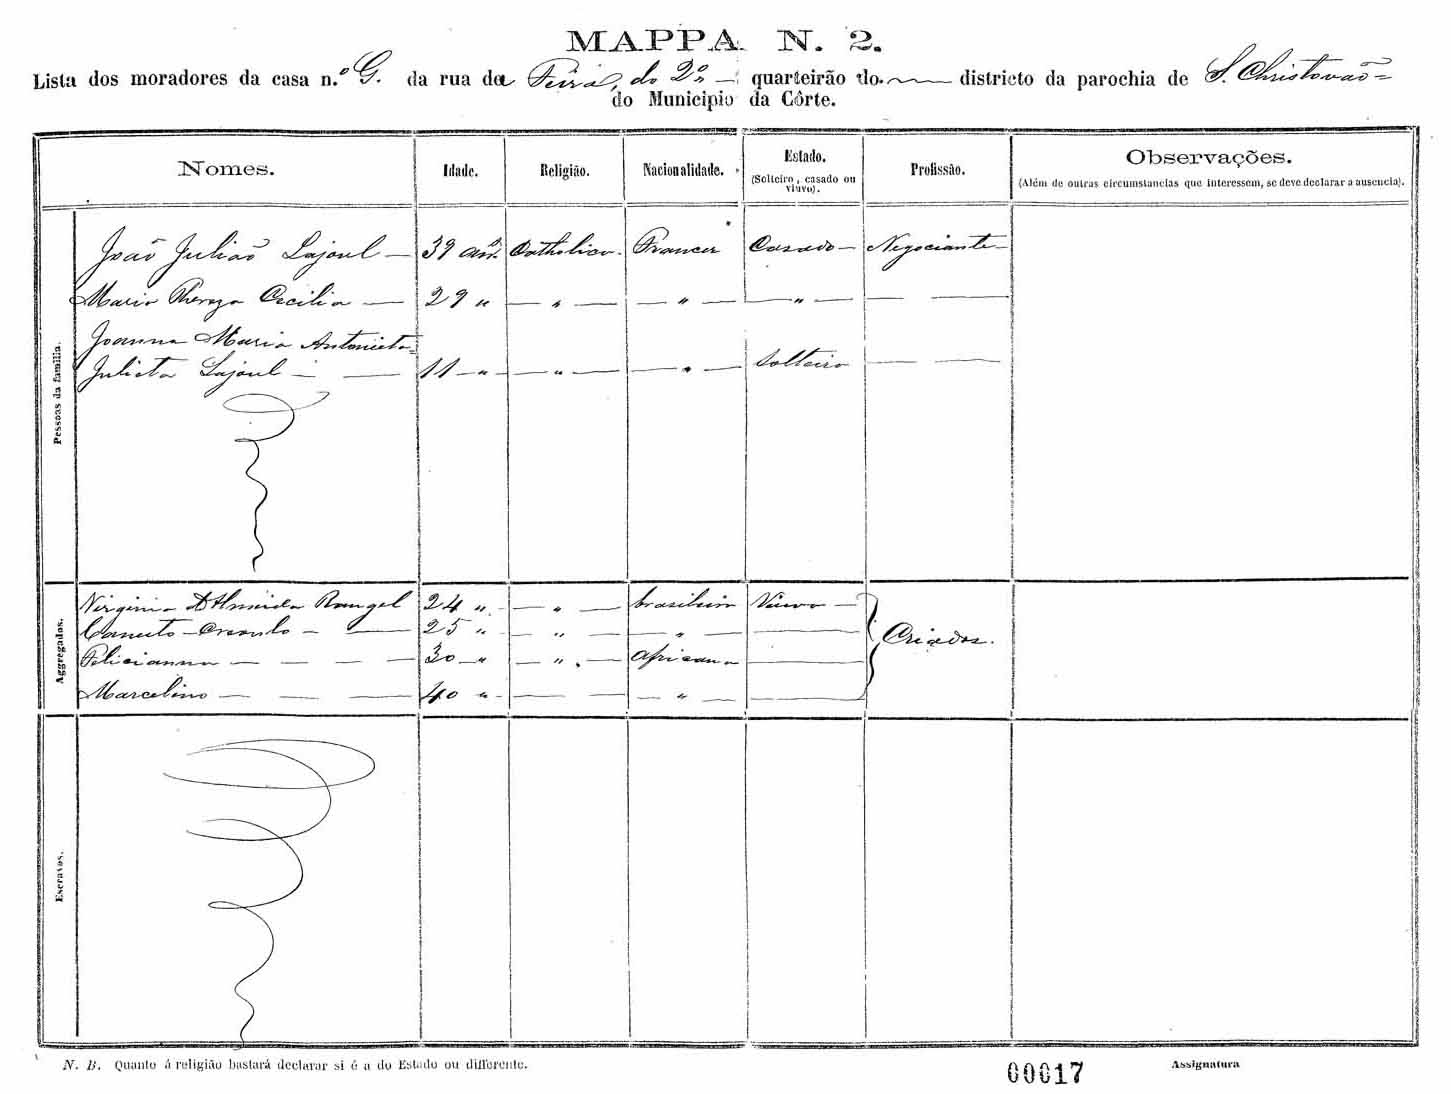 MAPPA N. 2.
Lista dos moradores da casa n.º G. da rua da Feira, do 2º quarteirão do districto da parochia de S. Christovão
do Municipio da Côrte.
Nomes. Idade. Religião. Nacionalidade. Estado. (Solteiro, casado ou viuvo). Profissão. Observações. (Além de outras circumstancias que interessem, se deve declarar a ausencia).
Pessoas da familia.
João Julião Lajoul — 39 ann. Catholico. Francez Casado — Negociante —
Maria Thereza Cecilia — 29 " — " — — " — — " — — —
Joanna Maria Antonieta
Julieta Lajoul — — 11 — " — " — — " — Solteiro — —
Aggregados.
Virginia d'Almeida Rangel 24 " — " — brasileira Viuva —
Canuto — Creoulo — — 25 " — " — — " — —
Felicianna — — — — 30 " — " — Africana —
Criados.
Marcelino — — — — 40 " — " — — " — —
Escravos.
N. B. Quanto á religião bastará declarar si é a do Estado ou differente.
00017
Assignatura